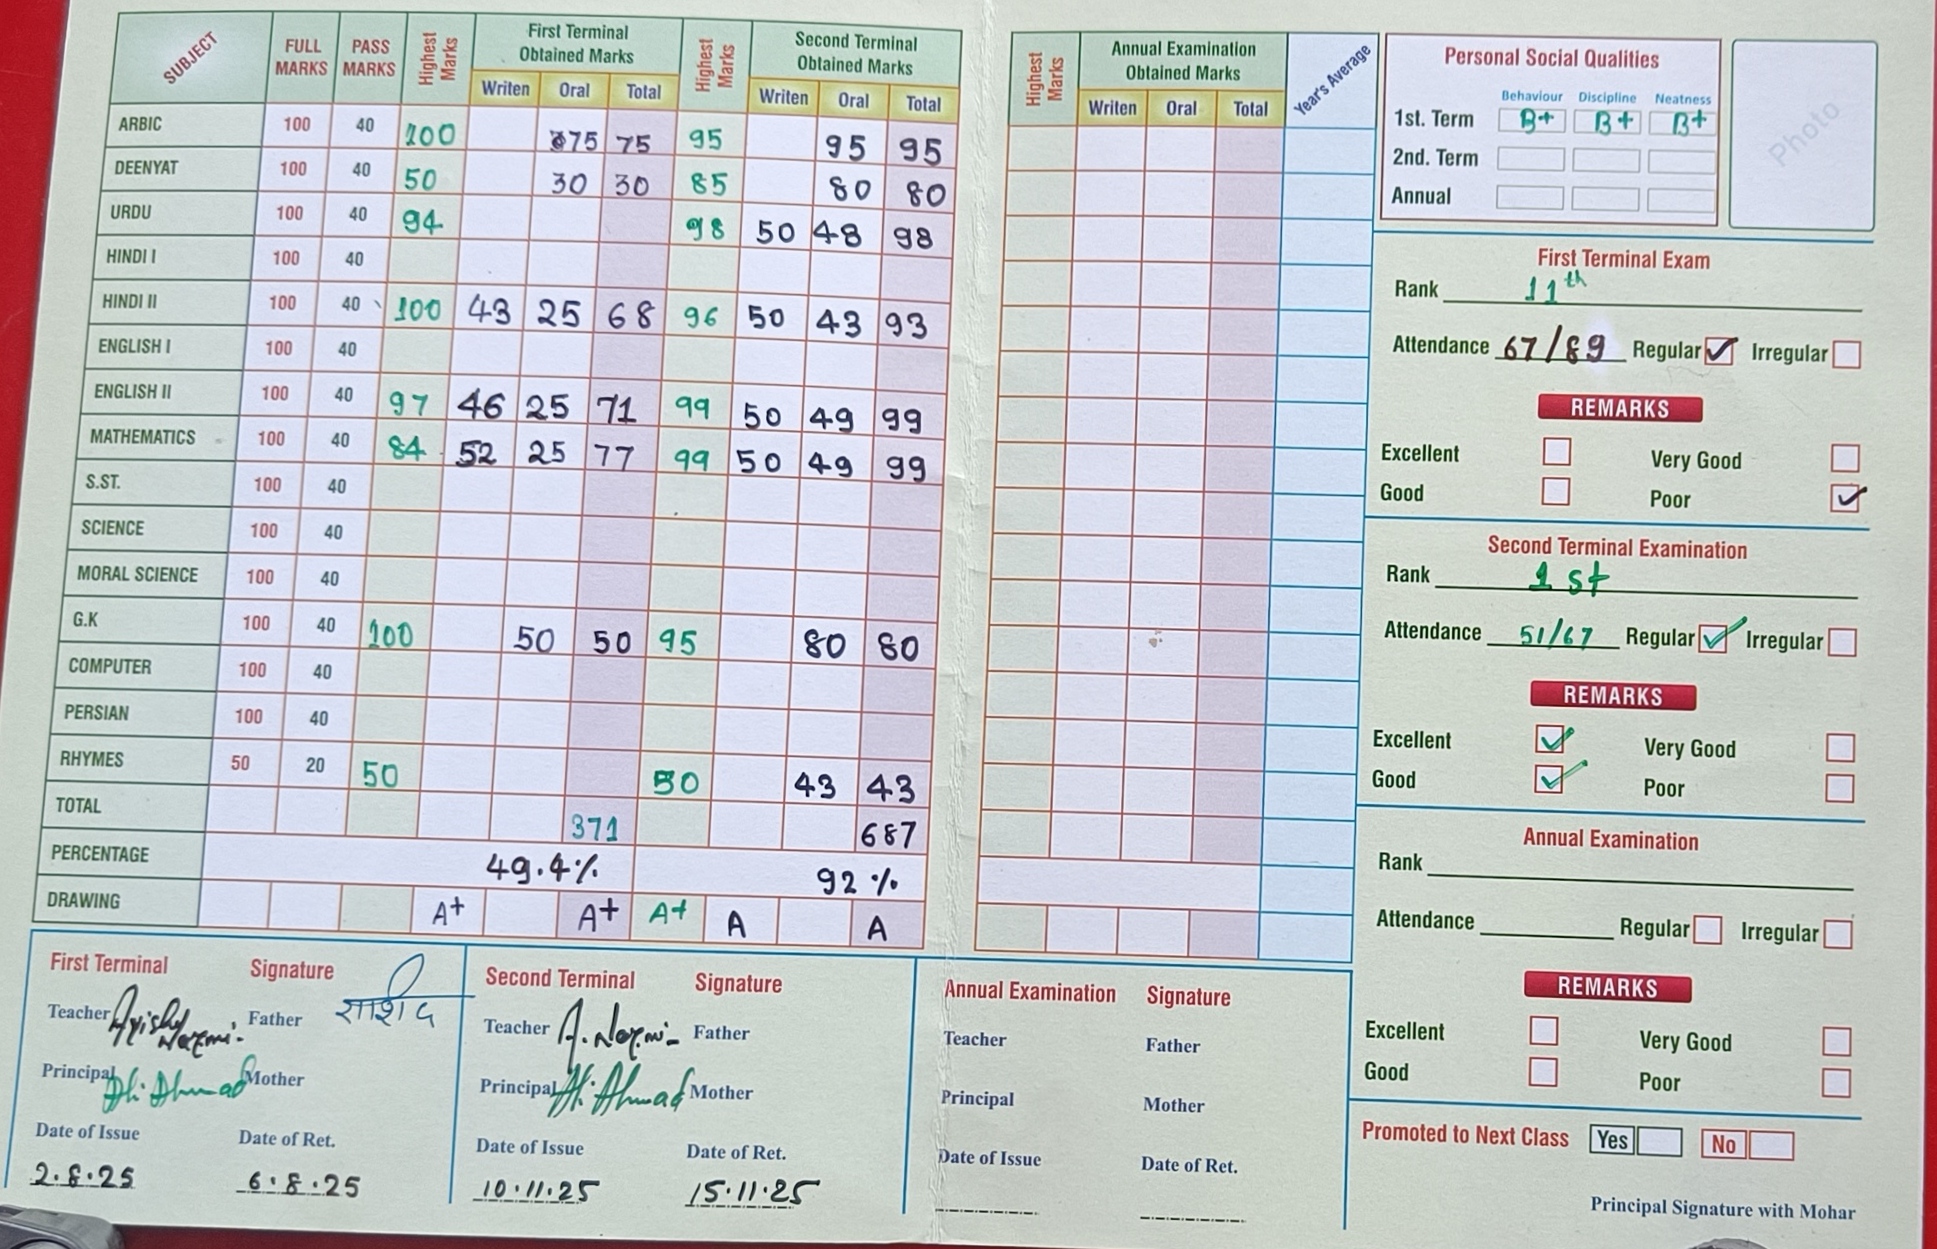 SUBJECT FULL MARKS PASS MARKS Highest Marks First Terminal Obtained Marks Highest Marks Second Terminal Obtained Marks
Writen Oral Total Writen Oral Total
ARBIC 100 40 100 75 75 95 95 95
DEENYAT 100 40 50 30 30 85 80 80
URDU 100 40 94 98 50 48 98
HINDI I 100 40
HINDI II 100 40 100 43 25 68 96 50 43 93
ENGLISH I 100 40
ENGLISH II 100 40 97 46 25 71 99 50 49 99
MATHEMATICS 100 40 84 52 25 77 99 50 49 99
S.ST. 100 40
SCIENCE 100 40
MORAL SCIENCE 100 40
G.K 100 40 100 50 50 95 80 80
COMPUTER 100 40
PERSIAN 100 40
RHYMES 50 20 50 50 43 43
TOTAL 371 687
PERCENTAGE 49.4% 92%
DRAWING A+ A+ A+ A A
Highest Marks Annual Examination Obtained Marks Year's Average
Writen Oral Total
Personal Social Qualities
Behaviour Discipline Neatness
1st. Term B+ B+ B+
2nd. Term
Annual
Photo
First Terminal Exam
Rank 11th
Attendance 67/89 Regular Irregular
REMARKS
Excellent Very Good
Good Poor
Second Terminal Examination
Rank 1st
Attendance 51/67 Regular Irregular
REMARKS
Excellent Very Good
Good Poor
Annual Examination
Rank
Attendance Regular Irregular
REMARKS
Excellent Very Good
Good Poor
Promoted to Next Class Yes No
Principal Signature with Mohar
First Terminal Signature
Teacher Father
Principal Mother
Date of Issue Date of Ret.
2.8.25 6.8.25
Second Terminal Signature
Teacher A. Nazmi Father
Principal H. Ahmad Mother
Date of Issue Date of Ret.
10.11.25 15.11.25
Annual Examination Signature
Teacher Father
Principal Mother
Date of Issue Date of Ret.